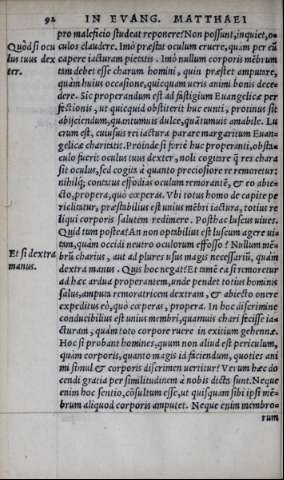 92 IN EVANG. MATTHAEI
pro maleficio studeat reponere? Non possunt, inquiet, o-
Quòd si ocu culos claudere. Imò præstat oculum eruere, quàm per eũ
lus tuus dex capere iacturam pietatis. Imò nullum corporis mẽbrum
ter. tàm debet esse charum homini, quin præstet amputare,
quàm huius occasione, quicquam ueri animi bonis dece-
dere. Sic properandum est ad fastigium Euangelicæ per
fectionis, ut quicquid obstiterit huc eunti, protinus sit
abijciendum, quantumuis dulce, quãtumuis amabile. Lu
crum est, cuiusuis rei iactura parare margaritum Euan-
gelicæ charitatis. Proinde si fortè huc properanti, obsta-
culo fuerit oculus tuus dexter, noli cogitare q̃ res chara
sit oculus, sed cogita à quanto preciosiore re remoretur:
nihilq; contatus effodias oculum remorantẽ, & eo abie-
cto, propera, quò cœperas. Vbi totus homo de capite pe
riclitatur, præstabilius est unius mẽbri iactura, totius re
liqui corporis salutem redimere. Posthac luscus uiues.
Quid tum postea? An non optabilius est luscum agere ui-
tam, quàm occidi utroque oculorum effosso? Nullum mẽ-
Et si dextra brũ charius, aut ad plures usus magis necessariũ, quàm
manus. dextra manus. Quis hoc negat? Et tamẽ ea si remoretur
ad hæc ardua properantem, unde pendet totius hominis
salus, amputa remoratricem dextram, & abiecto onere
expeditus eò, quò cœperas, propera. In hoc discrimine
conducibilius est unius membri, quamuis chari fecisse ia-
cturam, quàm toto corpore ruere in exitium gehennæ.
Hoc si probant homines, quum non aliud est periculum,
quàm corporis, quanto magis id faciendum, quoties ani
mi simul & corporis discrimen uertitur? Verum hæc do
cendi gratia per similitudinem à nobis dicta sunt. Neque
enim hoc sentio, cõsultum esse, ut quisquam sibi ipsi mẽ-
brum aliquod corporis amputet. Neque enim membro-
rum